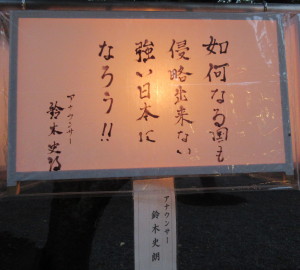 如何なる国も
侵略出来ない
強い日本に
なろう!!
アナウンサー
鈴木史朗
アナウンサー
鈴木史朗